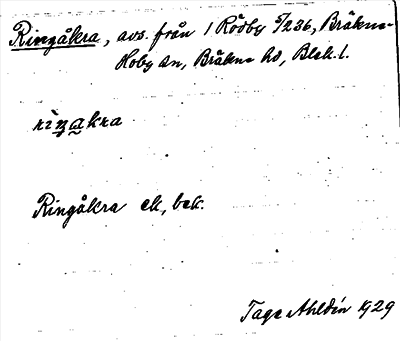 Ringåkra, avs. från 1 Rösby 5/236, Bräkne-
Hoby sn, Bräkne hd, Blek. l.
rìŋakra
Ringåkra ek, bek.
Tage Ahldén 1929